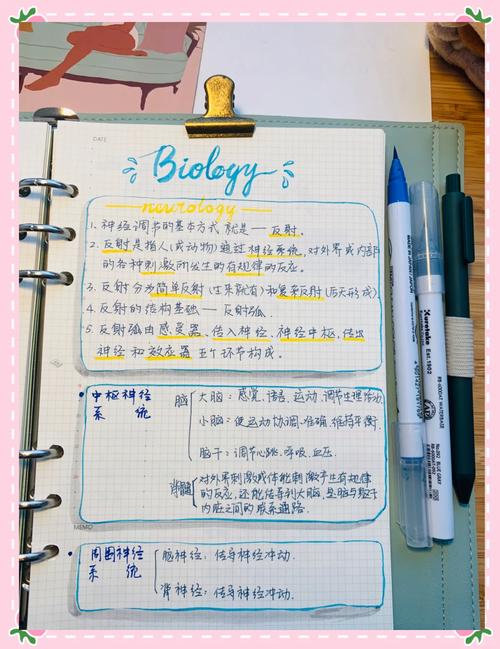 DATE
Biology
neurology
1. 神经调节的基本方式就是——反射.
2. 反射是指人(或动物)通过神经系统,对外界或内部
的各种刺激所发生的有规律的反应。
3. 反射分为简单反射(生来就有)和复杂反射(后天形成)
4. 反射的结构基础——反射弧.
5. 反射弧由感受器、传入神经、神经中枢,传出
神经和效应器五个环节构成。
中枢神经
系统
脑
大脑:感觉、语言、运动、调节生理活动
小脑:使运动协调、准确,维持平衡.
脑干:调节心跳、呼吸、血压.
脊髓
对外界刺激或体能刺激产生有规律
的反应,还能传导到大脑,是脑与躯干
内脏之间的联系通路.
MEMO
周围神经
系统
脑神经:传导神经冲动.
脊神经:传导神经冲动.
MADE IN JAPAN
Kuretake
Est. 1902
No.092 BLUE GRAY